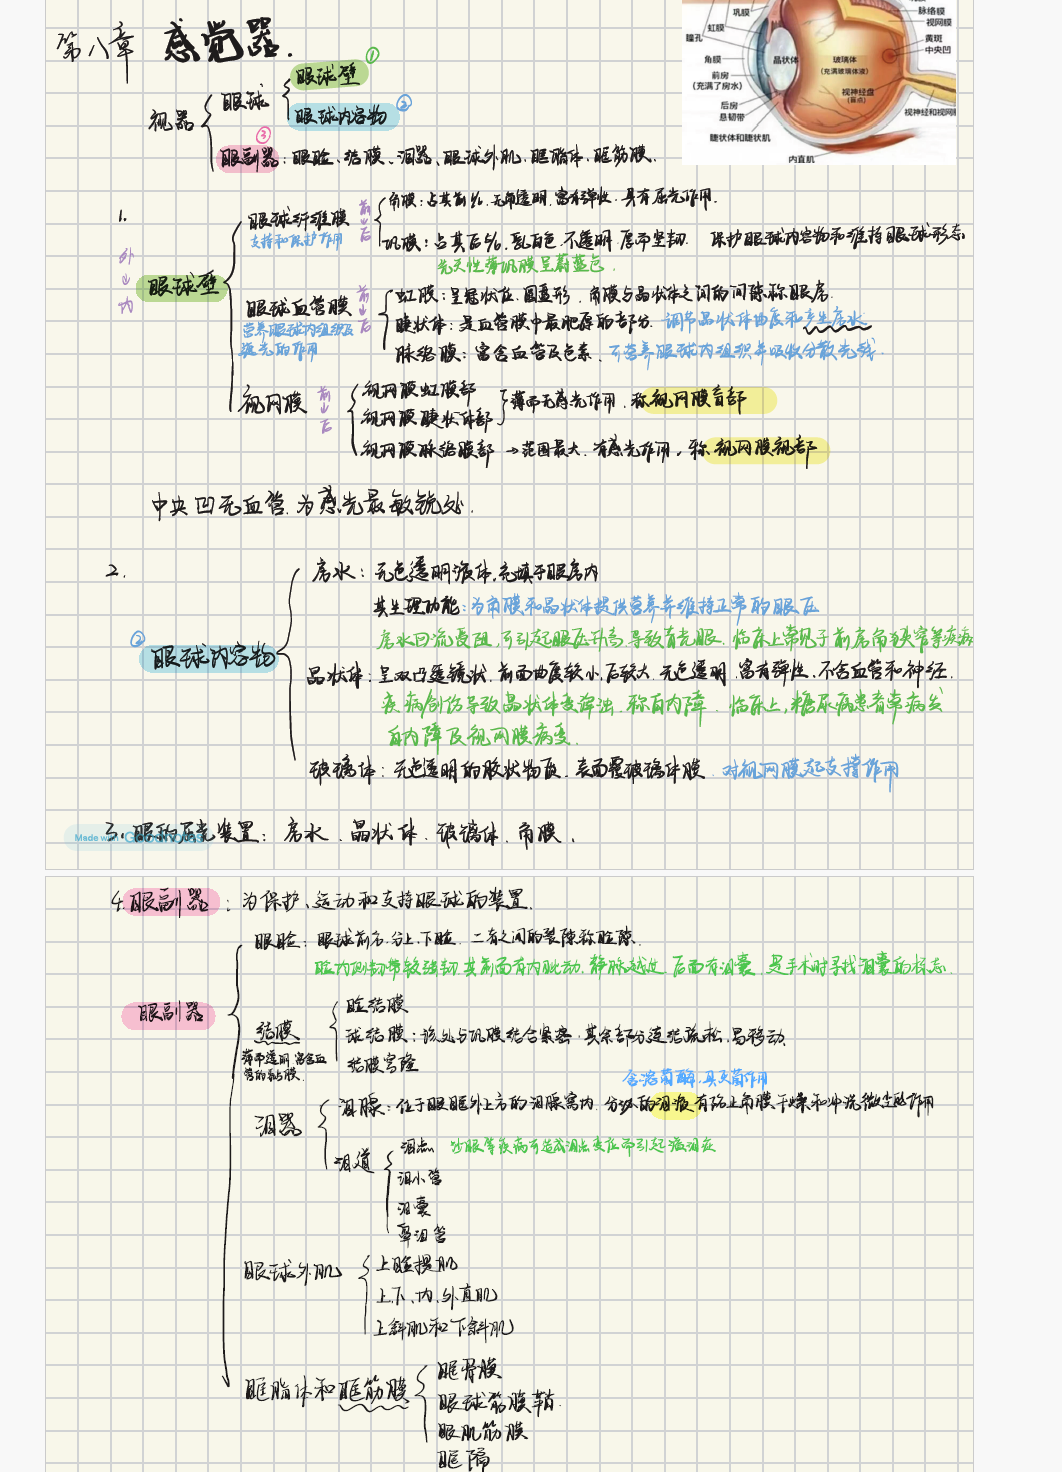 第八章 感觉器.
巩膜
脉络膜
虹膜
视网膜
瞳孔
黄斑
中央凹
角膜
晶状体
玻璃体
(充满玻璃体液)
前房
(充满了房水)
视神经盘
(盲点)
后房
悬韧带
视神经和视网膜
睫状体和睫状肌
内直肌
视器
眼球
眼球壁 ①
眼球内容物 ②
③
眼副器:眼睑、结膜、泪器、眼球外肌、眶脂体、眶筋膜.
1.
外→内
眼球壁
眼球纤维膜
支持和保护作用
前→后
角膜:占其前1/6.无色透明.富有弹性.具有屈光作用.
巩膜:占其后5/6.乳白色.不透明.厚而坚韧. 保护眼球内容物和维持眼球形态
先天性薄巩膜呈蔚蓝色.
眼球血管膜
营养眼球内组织及
遮光的作用
前→后
虹膜:呈冠状位.圆盘形.角膜与晶状体之间的间隙称眼房.
睫状体:是血管膜中最肥厚的部分.调节晶状体曲度和产生房水
脉络膜:富含血管及色素.可营养眼球内组织并吸收分散光线.
视网膜
前→后
视网膜虹膜部
视网膜睫状体部
薄而无感光作用.称视网膜盲部
视网膜脉络膜部 →范围最大.有感光作用,称视网膜视部
中央凹无血管.为感光最敏锐处.
2.
② 眼球内容物
房水:无色透明液体.充填于眼房内
其生理功能:为角膜和晶状体提供营养并维持正常的眼压
房水回流受阻,可引起眼压升高.导致青光眼.临床上常见于前房角狭窄等疾病
晶状体:呈双凸透镜状.前面曲度较小.后较大.无色透明.富有弹性.不含血管和神经.
疾病创伤导致晶状体变浑浊.称白内障.临床上,糖尿病患者常病发
白内障及视网膜病变.
玻璃体:无色透明的胶状物质.表面覆玻璃体膜.对视网膜起支撑作用
Made with Goodnotes
3.眼的屈光装置:房水、晶状体、玻璃体、角膜.
4.眼副器:为保护、运动和支持眼球的装置.
眼副器
眼睑:眼球前方,分上、下睑.二者之间的裂隙称睑隙.
睑内侧韧带较强韧.其前面有内眦动、静脉越过.后面有泪囊.是手术时寻找泪囊的标志.
结膜
薄而透明,富含血
管的黏膜.
睑结膜
球结膜:该处与巩膜结合紧密.其余部分连结疏松,易移动.
结膜穹窿
含溶菌酶.具灭菌作用
泪器
泪腺:位于眼眶外上方的泪腺窝内.分泌的泪液有防止角膜干燥和冲洗微尘的作用
泪道
泪点 沙眼等疾病可造成泪点变位而引起溢泪症
泪小管
泪囊
鼻泪管
眼球外肌
上睑提肌
上、下、内、外直肌
上斜肌和下斜肌
眶脂体和眶筋膜
眶骨膜
眼球筋膜鞘.
眼肌筋膜
眶隔